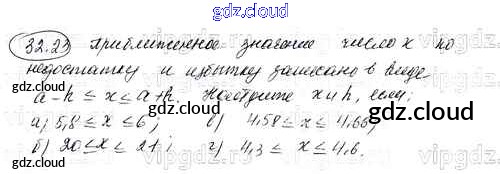 gdz.cloud
32.23 Приближенное значение число х по
недостатку и избытку записано в виде
a - h ≤ x ≤ a + h. Найдите x и h, если:
а) 5,8 ≤ x ≤ 6; в) 4,58 ≤ x ≤ 4,66;
б) 20 ≤ x ≤ 21; г) 4,3 ≤ x ≤ 4,6.
gdz.cloud
gdz.cloud
gdz.cloud
gdz.cloud